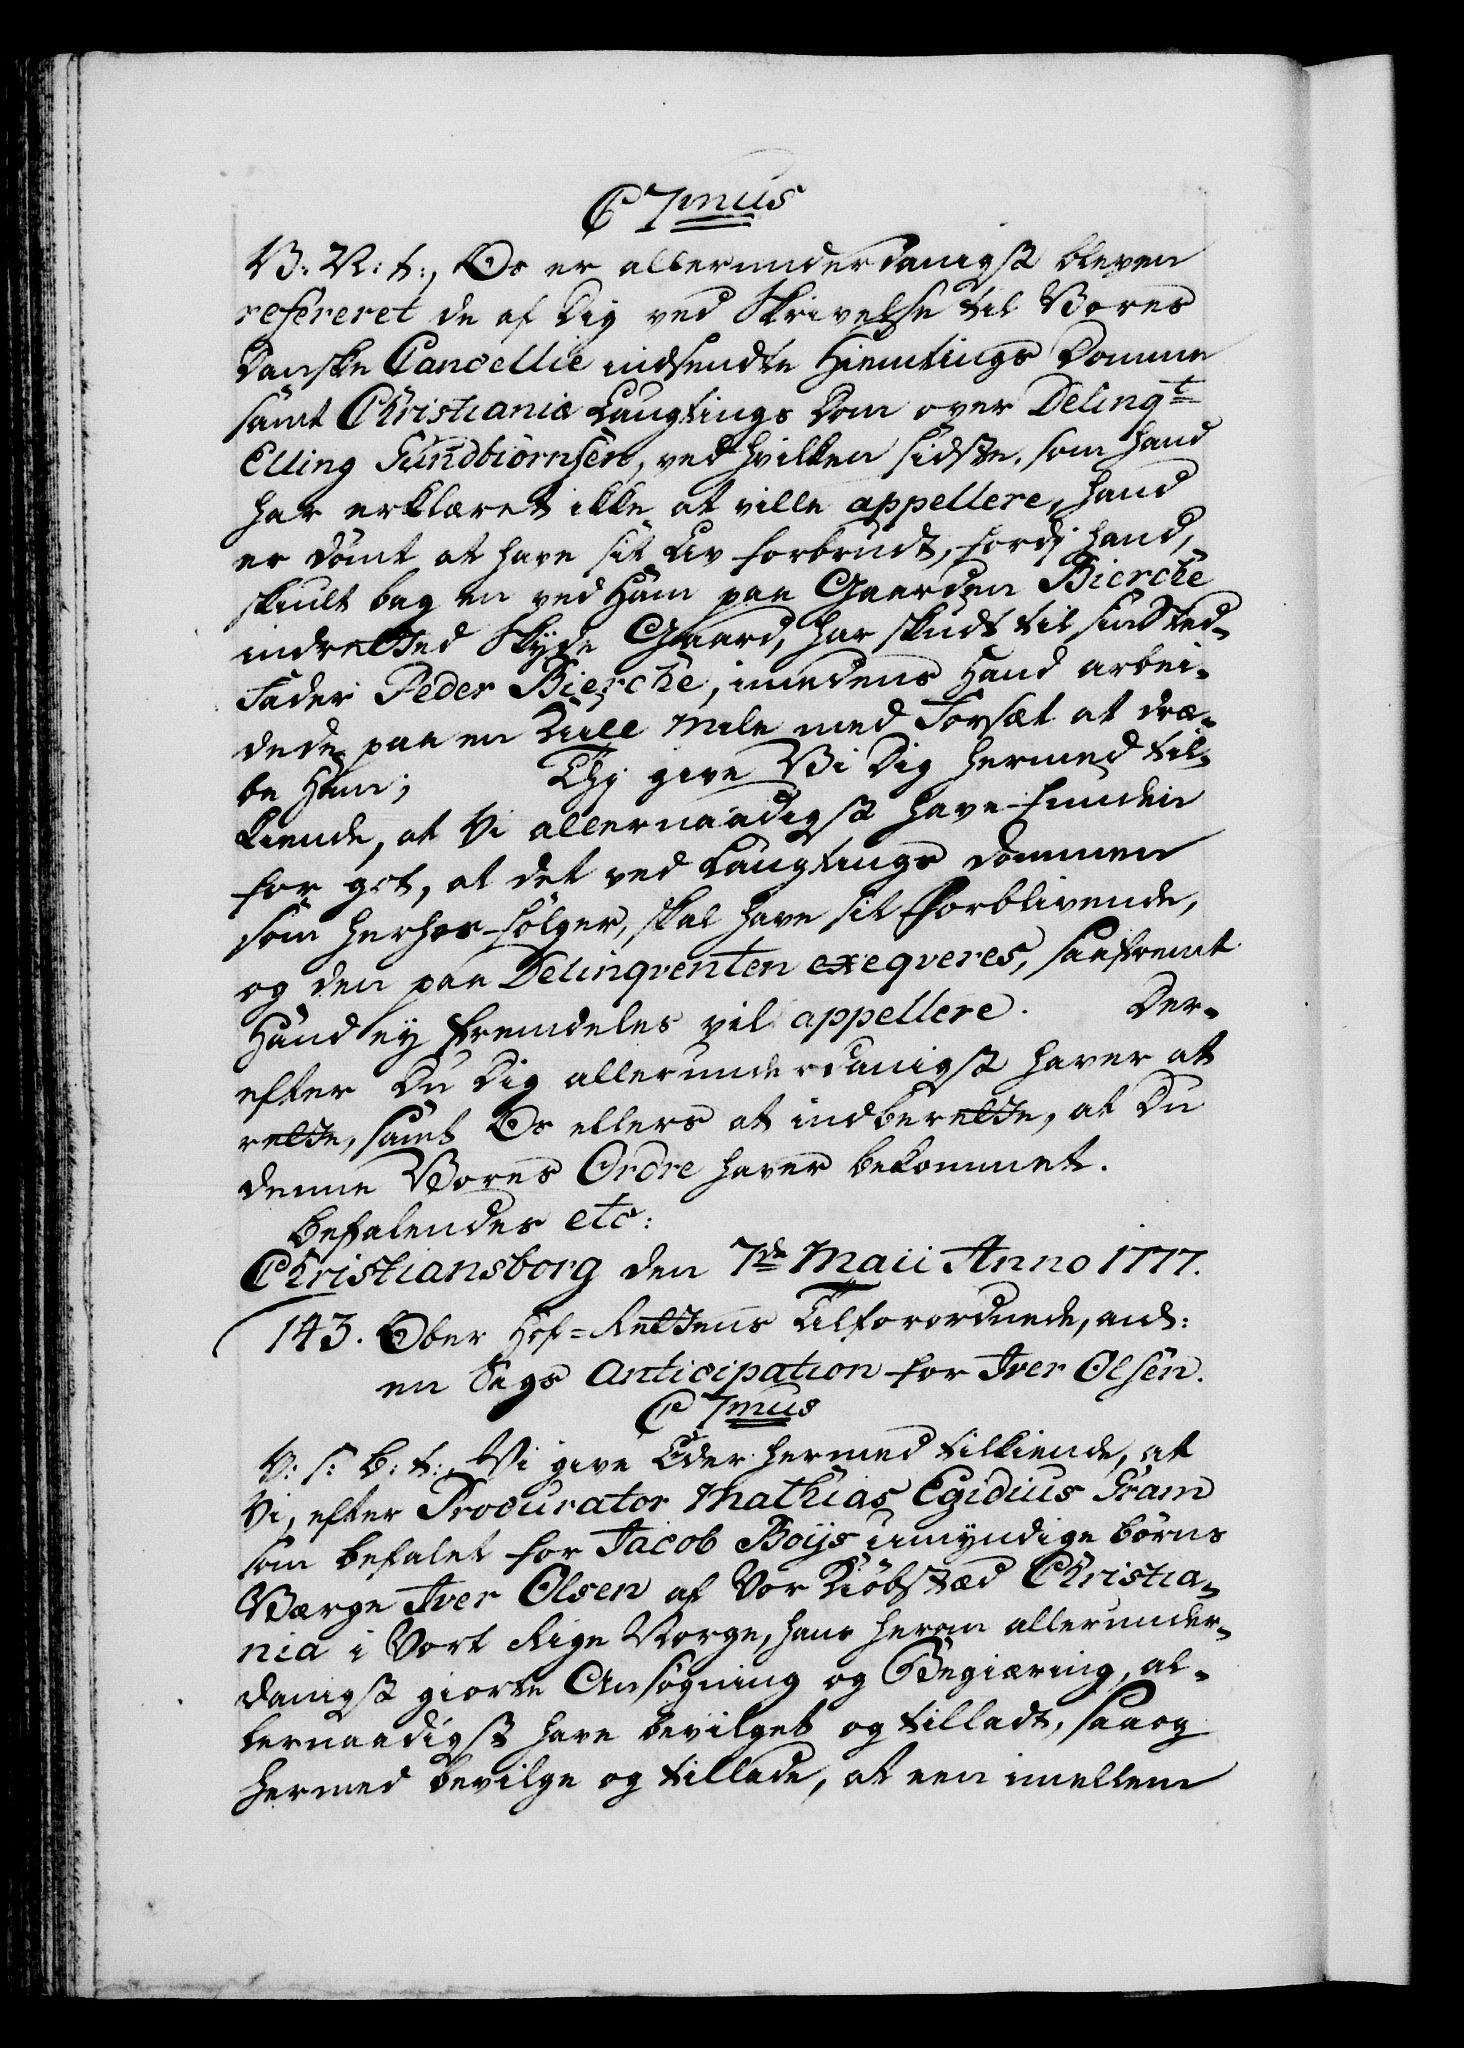 C 7mus
V: N: t:, Os er allerunderdanigst bleven
refereret de af Dig ved Skrivelse til Vores
Danske Cancellie indsendte Hiemtings Domme
samt Christiania Laugtings Dom over Delinqt
Elling Gundbiørnsen, ved hvilken sidste, som hand
har erklæret ikke at ville appellere, hand
er dømt at have sit Liv forbrudt, fordi hand,
skiult bag en ved Ham paa Gaarden Bierche
indretted Skyde Gaard, har skudt til sin Sted-
Fader Peder Bierche, imedens Hand arbei-
dede paa en Kull Mile med Forsæt at dræ-
be Ham; Thj give Vi Dig hermed til-
kiende, at Vi allernaadigst have funden
for got, at det ved Laugtings Dommen
som herhos følger, skal have sit Forblivende,
og den paa Delinqventen exeqveres, saafremt
Hand ey fremdeles vil appellere. Der-
efter Du Dig allerunderdanigst haver at
rette, samt Os ellers at indberette, at Du
denne Vores Ordre haver bekommet.
Befalendes etc:
Christiansborg den 7de Maii Anno 1777.
143. Ober Hof-Rettens Tilforordnede, anl:
en Sags Anticipation for Iver Olsen.
C 7mus
V: S: B: t:, Vi give Eder hermed tilkiende, at
Vi, efter Procurator Mathias Egidius Gram
som befalet for Jacob Boijs umyndige Børns
Værge Iver Olsen af Vor Kiøbstæd Christia-
nia i Vort Rige Norge, hans herom allerunder-
danigst giorte Ansøgning og Begiæring, al-
lernaadigst have bevilget og tilladt, saa og
hermed bevilge og tillade, at een imellem